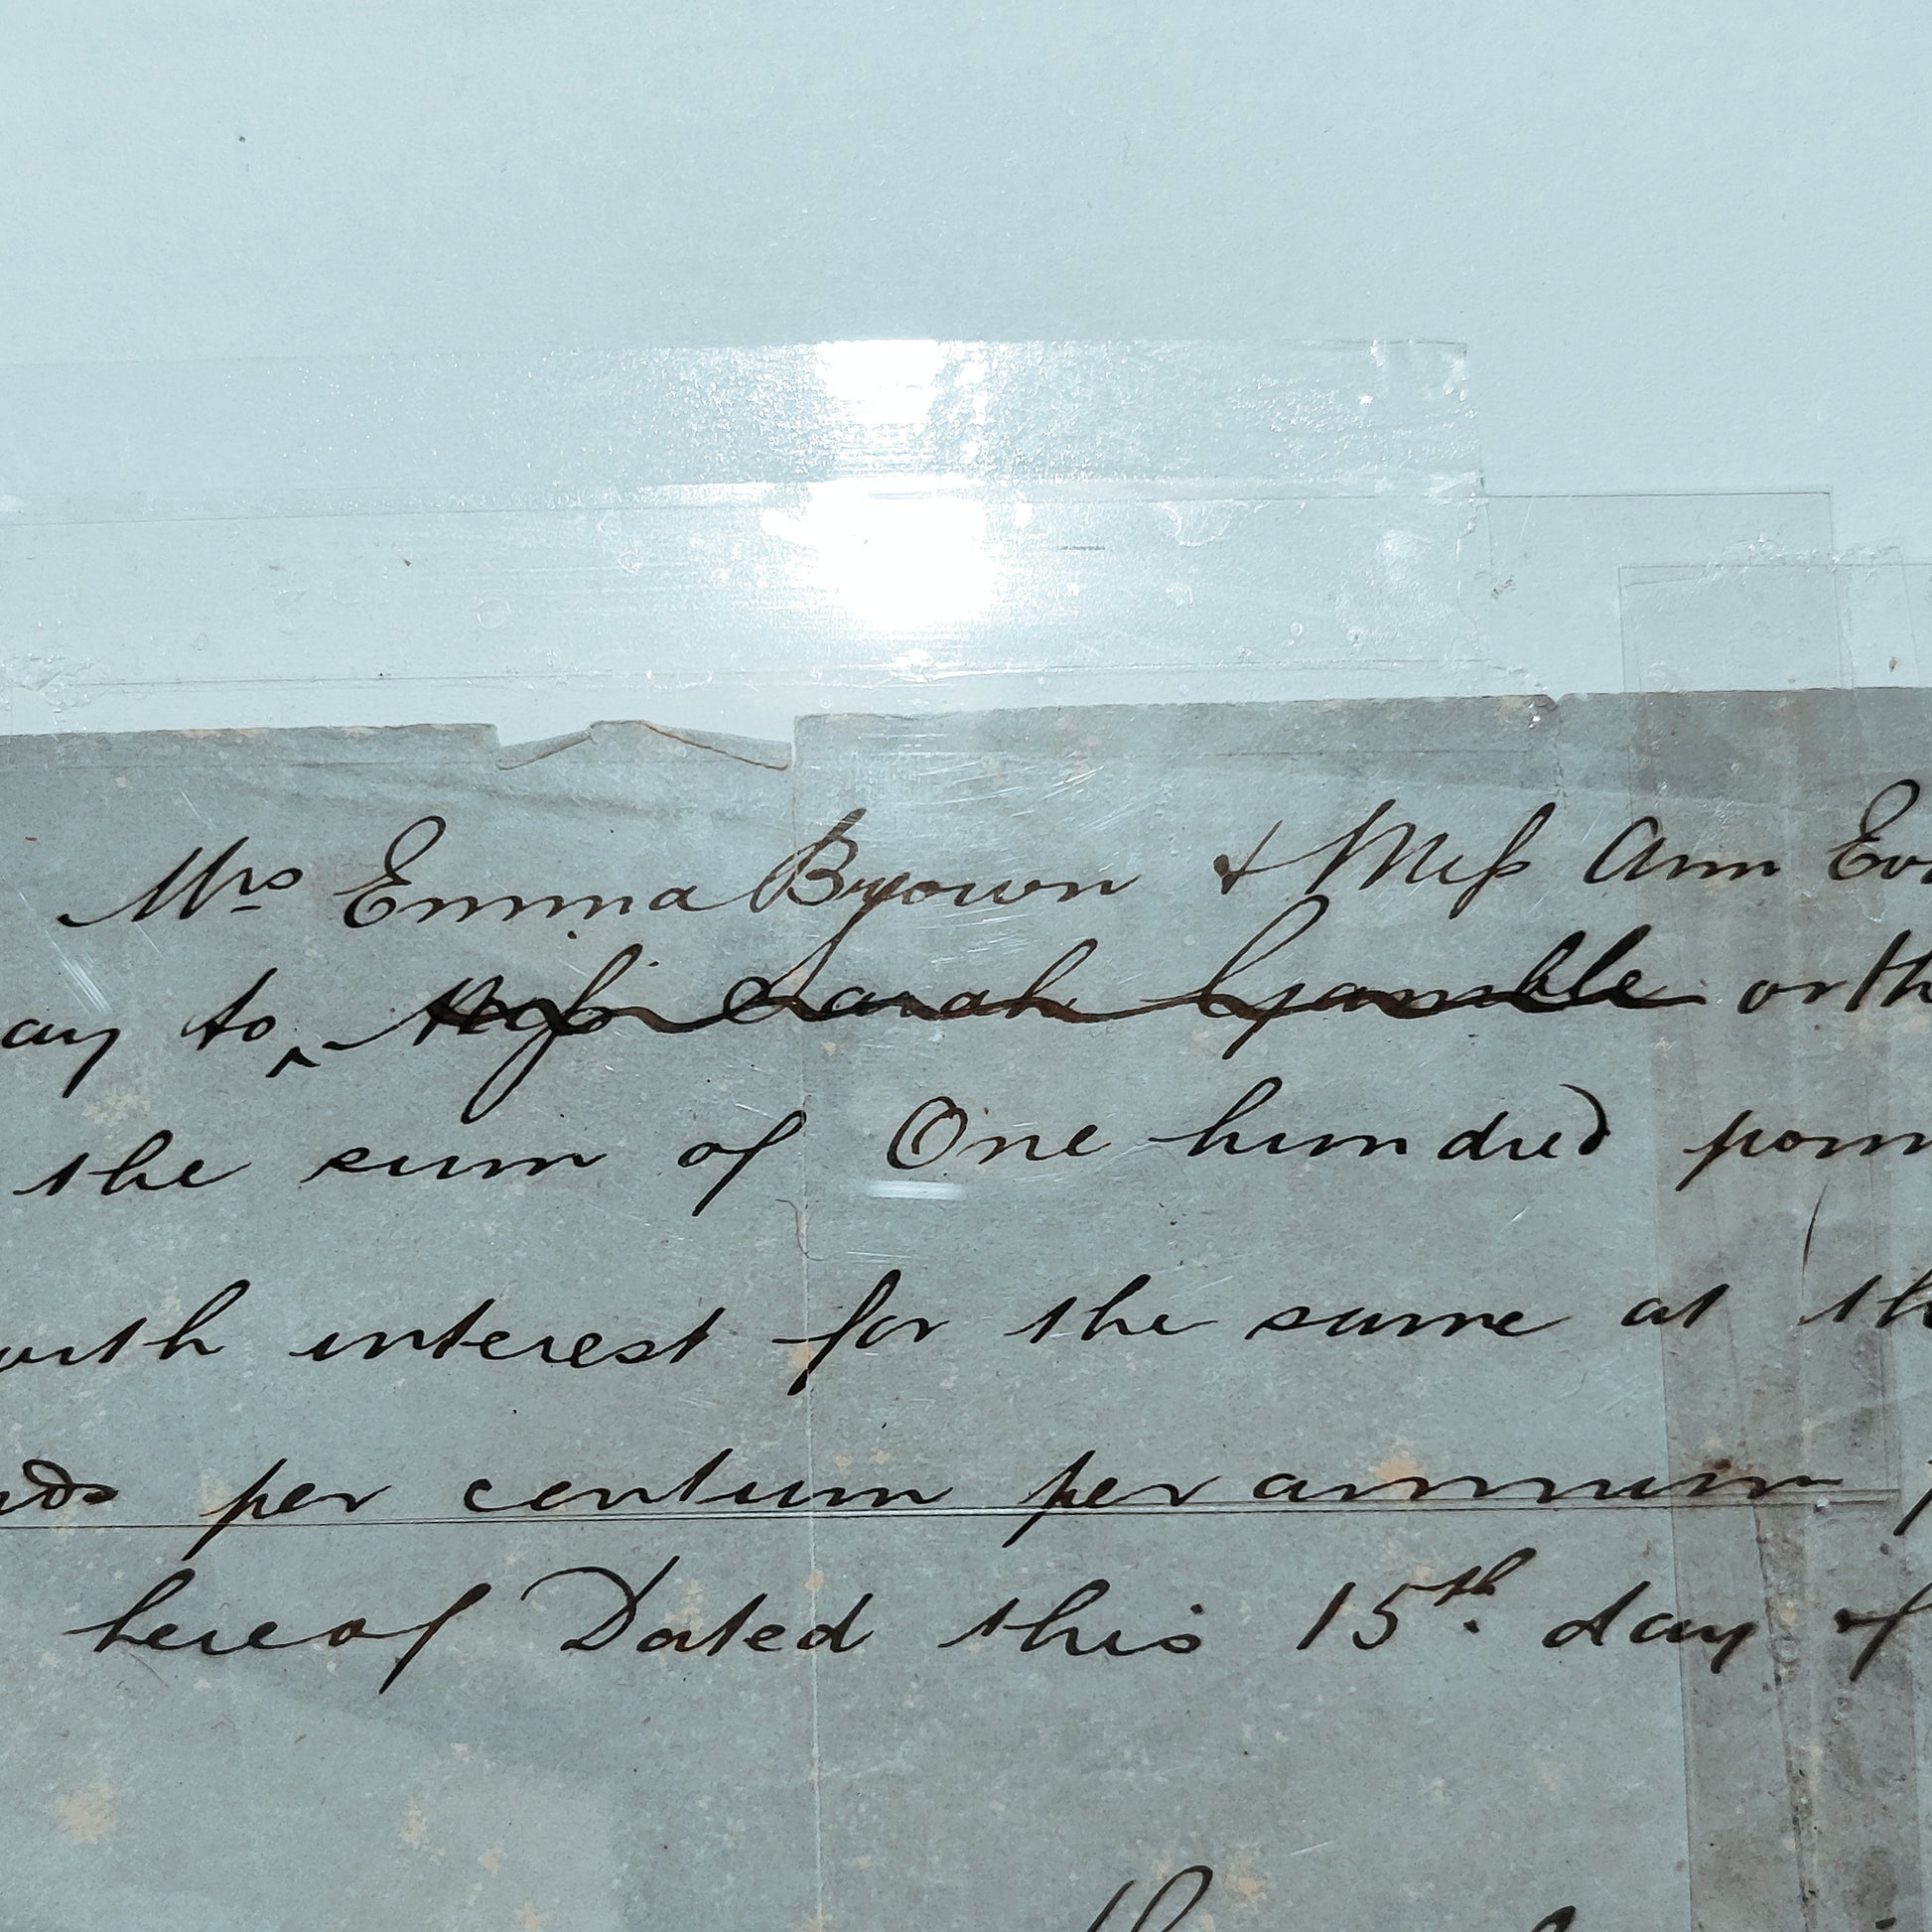 Mrs Emma Brown & Miss Ann
ay to ^ Miss Sarah Gamble or th
the sum of One hundred poun
with interest for the same at th
nds per centum per annum
hereof Dated this 15th day of